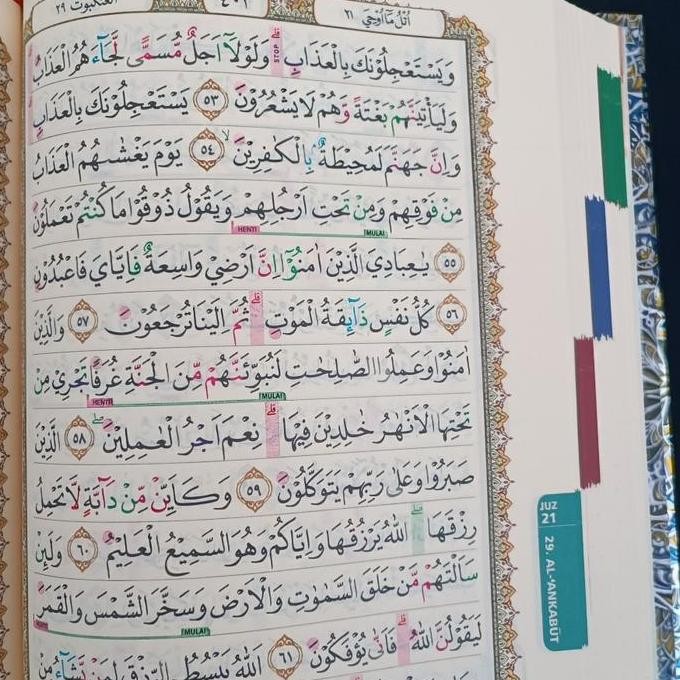 العنكبوت ٢٩
٤٠٣
اتل ما اوحي ٢١
وَيَسْتَعْجِلُوْنَكَ بِالْعَذَابِۗ وَلَوْلَآ اَجَلٌ مُّسَمًّى لَّجَاۤءَهُمُ الْعَذَابُ
STOP
وَلَيَأْتِيَنَّهُمْ بَغْتَةً وَّهُمْ لَا يَشْعُرُوْنَ ٥٣ يَسْتَعْجِلُوْنَكَ بِالْعَذَابِ
وَاِنَّ جَهَنَّمَ لَمُحِيْطَةٌ ۢ بِالْكٰفِرِيْنَۙ ٥٤ يَوْمَ يَغْشٰىهُمُ الْعَذَابُ
مِنْ فَوْقِهِمْ وَمِنْ تَحْتِ اَرْجُلِهِمْ وَيَقُوْلُ ذُوْقُوْا مَا كُنْتُمْ تَعْمَلُوْنَ
HENTI
MULAI
٥٥ يٰعِبَادِيَ الَّذِيْنَ اٰمَنُوْٓا اِنَّ اَرْضِيْ وَاسِعَةٌ فَاِيَّايَ فَاعْبُدُوْنِ
٥٦ كُلُّ نَفْسٍ ذَاۤىِٕقَةُ الْمَوْتِۗ ثُمَّ اِلَيْنَا تُرْجَعُوْنَ ٥٧ وَالَّذِيْنَ
اٰمَنُوْا وَعَمِلُوا الصّٰلِحٰتِ لَنُبَوِّئَنَّهُمْ مِّنَ الْجَنَّةِ غُرَفًا تَجْرِيْ مِنْ
HENTI
MULAI
تَحْتِهَا الْاَنْهٰرُ خٰلِدِيْنَ فِيْهَاۗ نِعْمَ اَجْرُ الْعٰمِلِيْنَۖ ٥٨ الَّذِيْنَ
صَبَرُوْا وَعَلٰى رَبِّهِمْ يَتَوَكَّلُوْنَ ٥٩ وَكَاَيِّنْ مِّنْ دَاۤبَّةٍ لَّا تَحْمِلُ
رِزْقَهَاۖ اَللّٰهُ يَرْزُقُهَا وَاِيَّاكُمْ وَهُوَ السَّمِيْعُ الْعَلِيْمُ ٦٠ وَلَىِٕنْ
سَاَلْتَهُمْ مَّنْ خَلَقَ السَّمٰوٰتِ وَالْاَرْضَ وَسَخَّرَ الشَّمْسَ وَالْقَمَرَ
MULAI
لَيَقُوْلُنَّ اللّٰهُۗ فَاَنّٰى يُؤْفَكُوْنَ ٦١ اَللّٰهُ يَبْسُطُ الرِّزْقَ لِمَنْ يَّشَاۤءُ مِنْ
JUZ
21
29. AL-'ANKABŪT